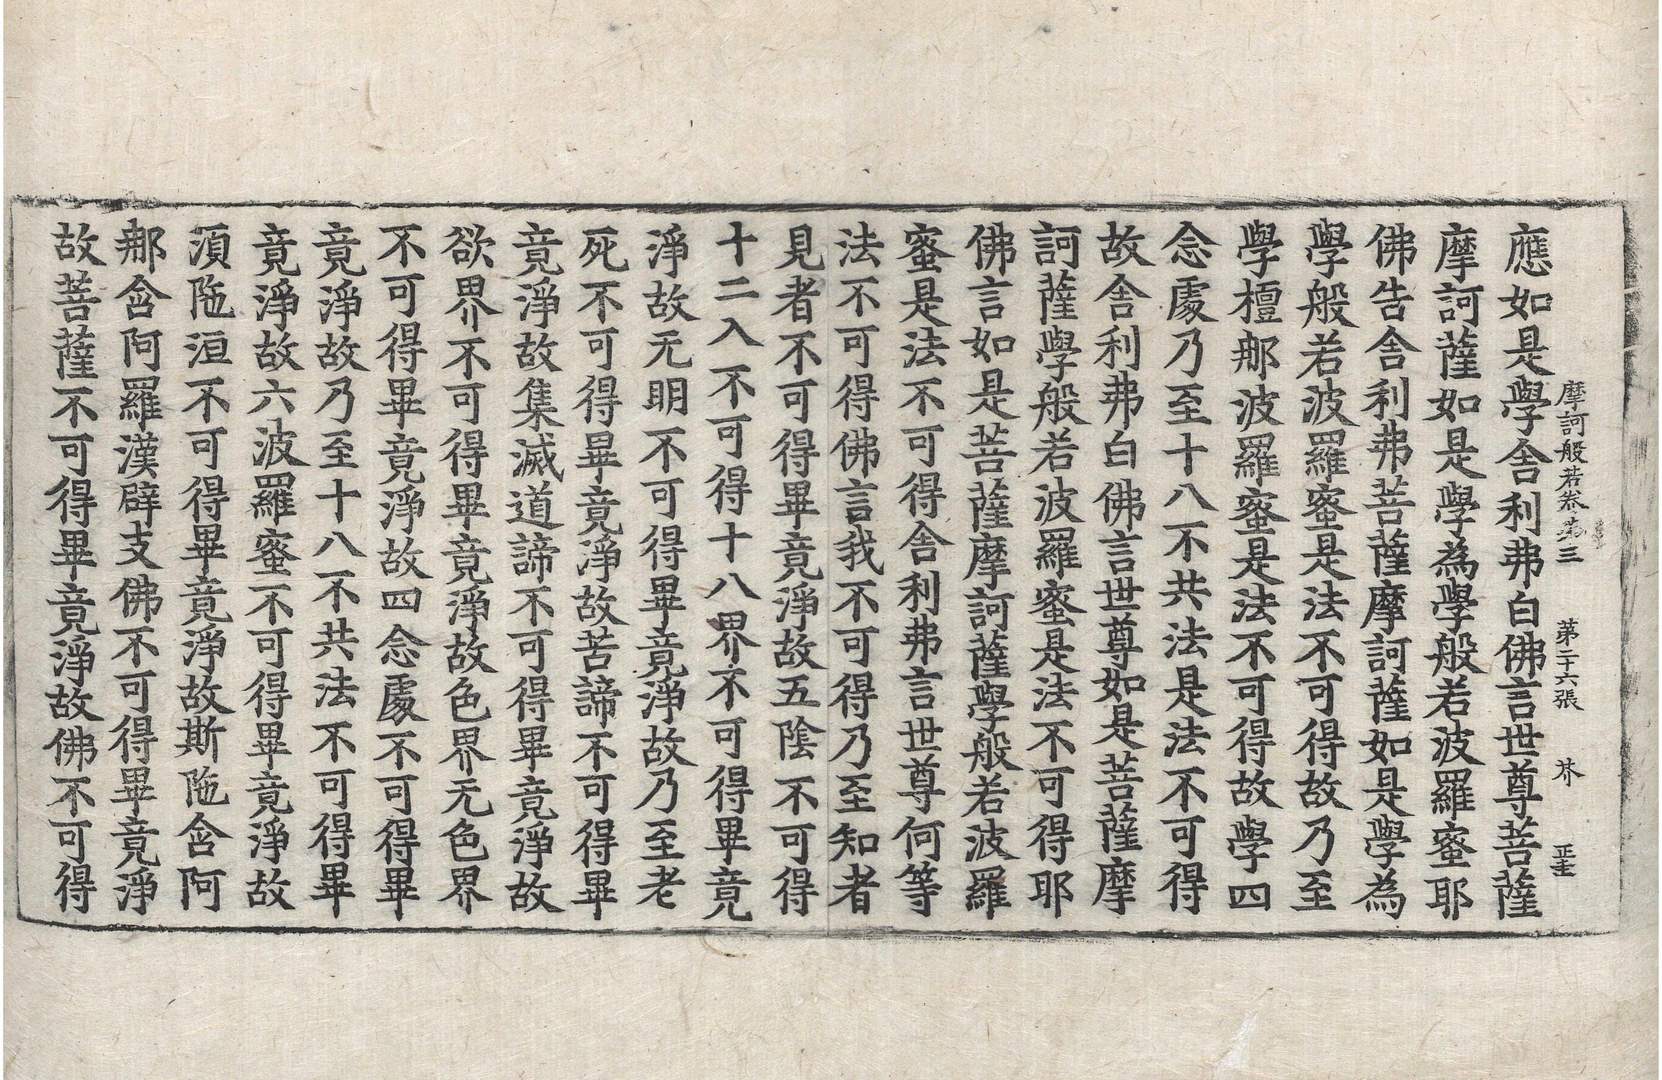 摩訶般若卷第三 第二十六張 芥 正圭
應如是學舍利弗白佛言世尊菩薩
摩訶薩如是學為學般若波羅蜜耶
佛告舍利弗菩薩摩訶薩如是學為
學般若波羅蜜是法不可得故乃至
學檀那波羅蜜是法不可得故學四
念處乃至十八不共法是法不可得
故舍利弗白佛言世尊如是菩薩摩
訶薩學般若波羅蜜是法不可得耶
佛言如是菩薩摩訶薩學般若波羅
蜜是法不可得舍利弗言世尊何等
法不可得佛言我不可得乃至知者
見者不可得畢竟淨故五陰不可得
十二入不可得十八界不可得畢竟
淨故无明不可得畢竟淨故乃至老
死不可得畢竟淨故苦諦不可得畢
竟淨故集滅道諦不可得畢竟淨故
欲界不可得畢竟淨故色界无色界
不可得畢竟淨故四念處不可得畢
竟淨故乃至十八不共法不可得畢
竟淨故六波羅蜜不可得畢竟淨故
湏陁洹不可得畢竟淨故斯陁含阿
那含阿羅漢辟支佛不可得畢竟淨
故菩薩不可得畢竟淨故佛不可得